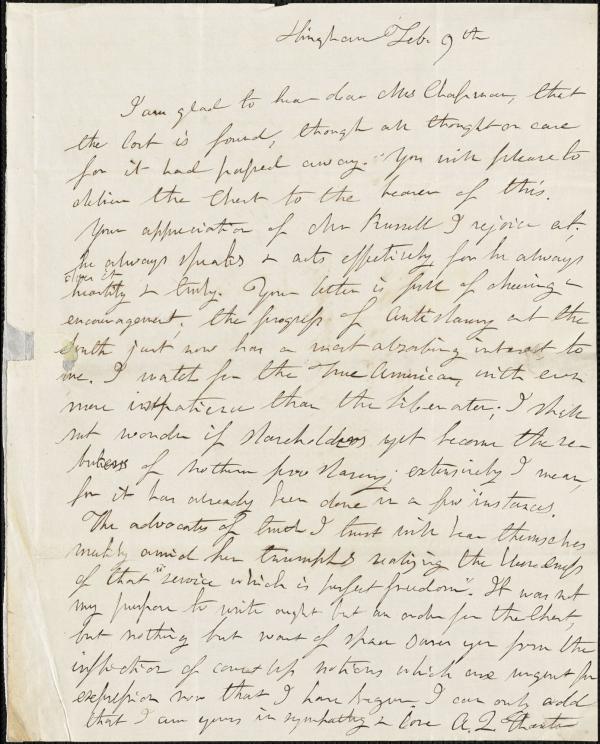 Hingham Feb. 9th
I am glad to hear dear Mrs Chapman, that
the lost is found, though all thought or care
for it had passed away. You will please to
deliver the Chest to the bearer of this.
Your appreciation of Mr Russell I rejoice at;
he always speaks & acts effectively for he always
does it
heartily & truly. Your letter is full of cheering
encouragement; the progress of Antislavery at the
South just now has a most absorbing interest to
me. I watch for the True American, with even
more impatience than the Liberator; I shall
not wonder if slaveholders yet become the re-
bukers of northern pro slavery; extensively I mean,
for it has already been done in a few instances.
The advocates of truth I trust will bear themselves
meekly amid her triumphs realizing the blessedness
of that "service which is perfect freedom". It was not
my purpose to write ought but an order for the Chest,
but nothing but want of space saves you from the
infliction of countless notions which are urgent for
expression now that I have begun. I can only add
that I am yours in sympathy & love A. L.